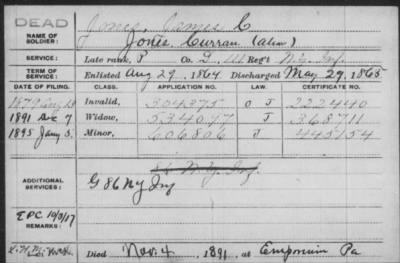 DEAD
NAME OF SOLDIER:
Jones, James C
Jones, Curran (alias)
SERVICE:
Late rank, P Co. D, Regt N.Y. Inf.
TERM OF SERVICE:
Enlisted Aug 29, 1864 Discharged May 29, 1865
DATE OF FILING. CLASS. APPLICATION NO. LAW. CERTIFICATE NO.
1879 Aug Invalid, 304375 O J 222440
1891 Dec 7 Widow, 534077 J 368711
1895 Jany 5. Minor, 606806 J 445154
ADDITIONAL SERVICES:
86 N.Y. Inf.
G 86 NY Inf
EPC 10/3/17
REMARKS:
Died Nov. 4, 1891, at Emporium Pa